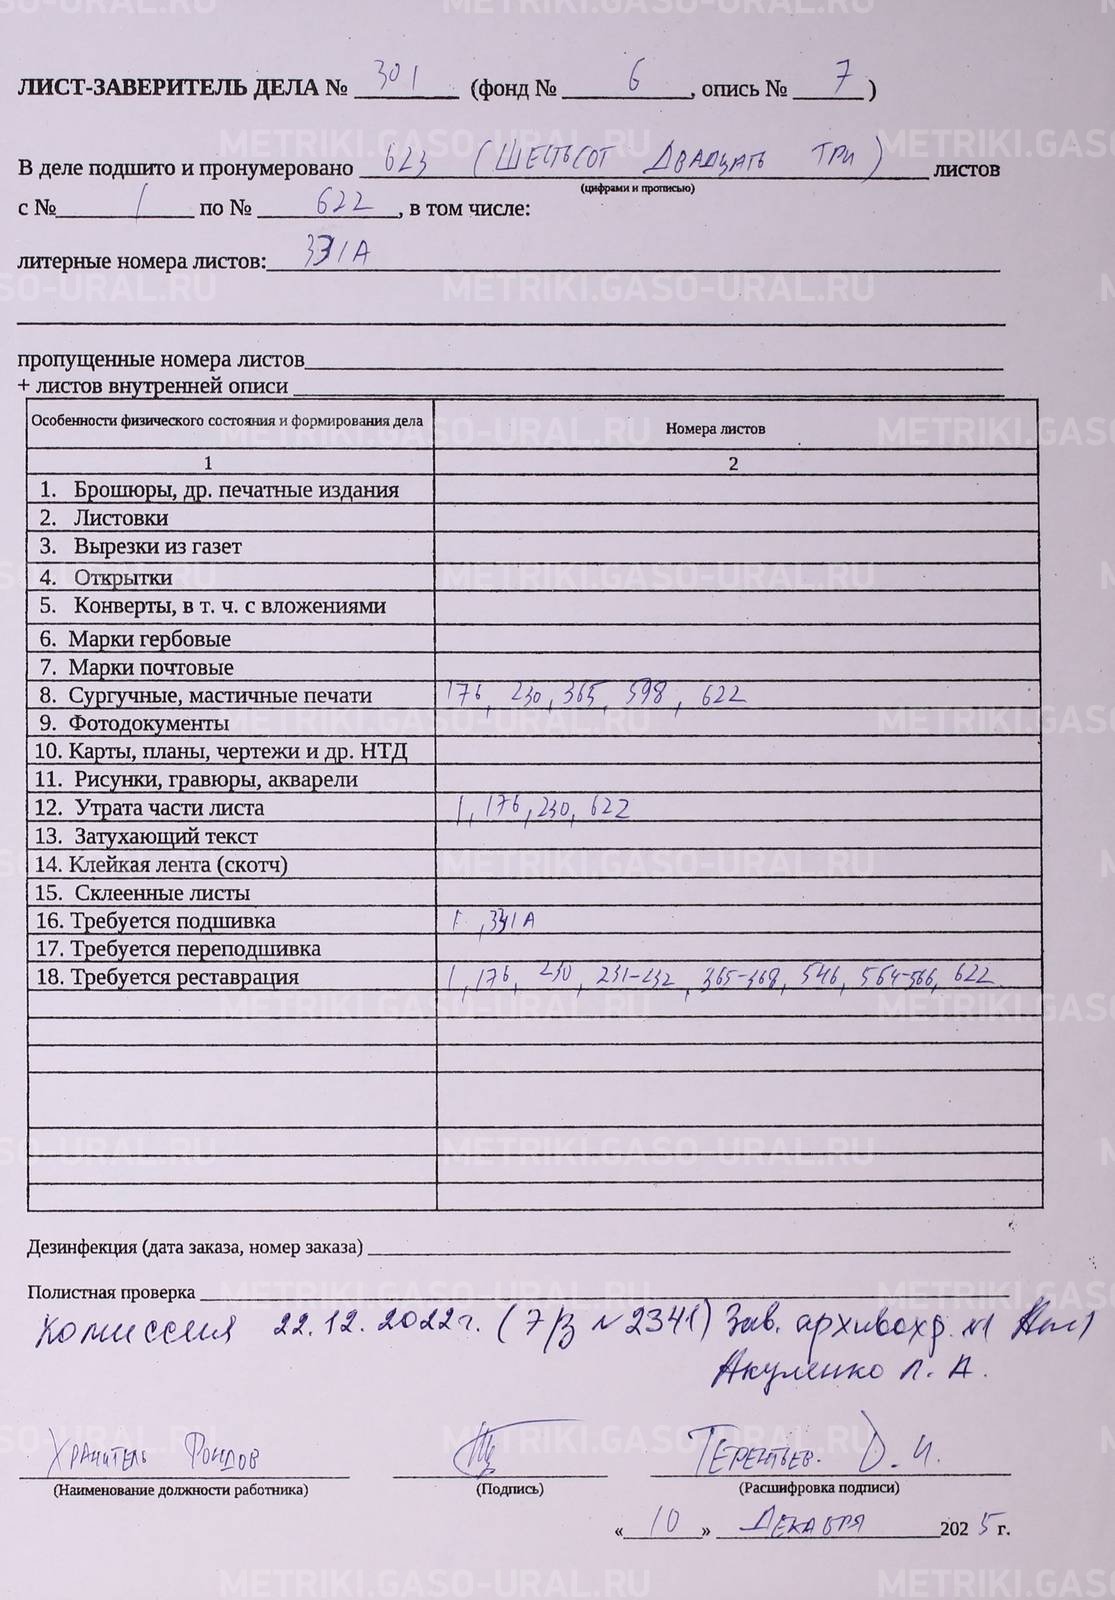 ЛИСТ-ЗАВЕРИТЕЛЬ ДЕЛА № 301 (фонд № 6, опись № 7)
В деле подшито и пронумеровано 623 (ШЕСТЬСОТ ДВАДЦАТЬ ТРИ) листов
(цифрами и прописью)
с № 1 по № 622, в том числе:
литерные номера листов: 331А
пропущенные номера листов
+ листов внутренней описи
Особенности физического состояния и формирования дела Номера листов
1 2
1. Брошюры, др. печатные издания
2. Листовки
3. Вырезки из газет
4. Открытки
5. Конверты, в т. ч. с вложениями
6. Марки гербовые
7. Марки почтовые
8. Сургучные, мастичные печати 176, 230, 365, 598, 622
9. Фотодокументы
10. Карты, планы, чертежи и др. НТД
11. Рисунки, гравюры, акварели
12. Утрата части листа 1, 176, 230, 622
13. Затухающий текст
14. Клейкая лента (скотч)
15. Склеенные листы
16. Требуется подшивка 1, 331А
17. Требуется переподшивка
18. Требуется реставрация 1, 176, 230, 231-232, 365-368, 546, 564-566, 622
Дезинфекция (дата заказа, номер заказа)
Полистная проверка
Комиссия 22.12.2022г. (7/з №2341) Зав. архивохр. №1
Акуленко Л. А.
ХРАНИТЕЛЬ ФОНДОВ ТЕРЕНТЬЕВ. Д. И.
(Наименование должности работника) (Подпись) (Расшифровка подписи)
«10» ДЕКАБРЯ 2025 г.
METRIKI.GASO-URAL.RU